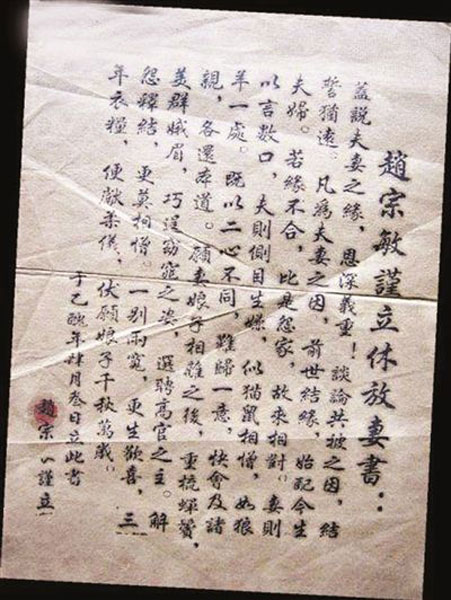 趙宗敏謹立休放妻書：
蓋說夫妻之緣，恩深義重！談論共被之因，結
誓猶遠。凡為夫妻之因，前世結緣，始配今生
夫婦。若緣不合，比是怨家，故來相對。妻則
以言數口，夫則側目生嫌，似貓鼠相憎，如狼
羊一處。既以二心不同，難歸一意，快會及諸
親，各還本道。願妻娘子相離之後，重梳蟬鬢，
美群娥眉，巧逞窈窕之姿，選聘高官之主。解
怨釋結，更莫相憎。一別兩寬，更生歡喜，三
年衣糧，便獻柔儀，伏願娘子千秋萬歲。
于乙醜年肆月叁日立此書
趙宗 謹立